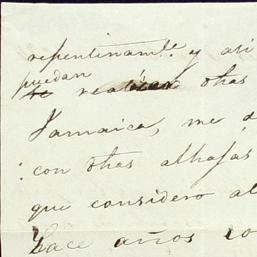 repentinamte. y asi
puedan
se realizan otras
Jamaica, me d
con otras alhajas
que considero al
Hace años co